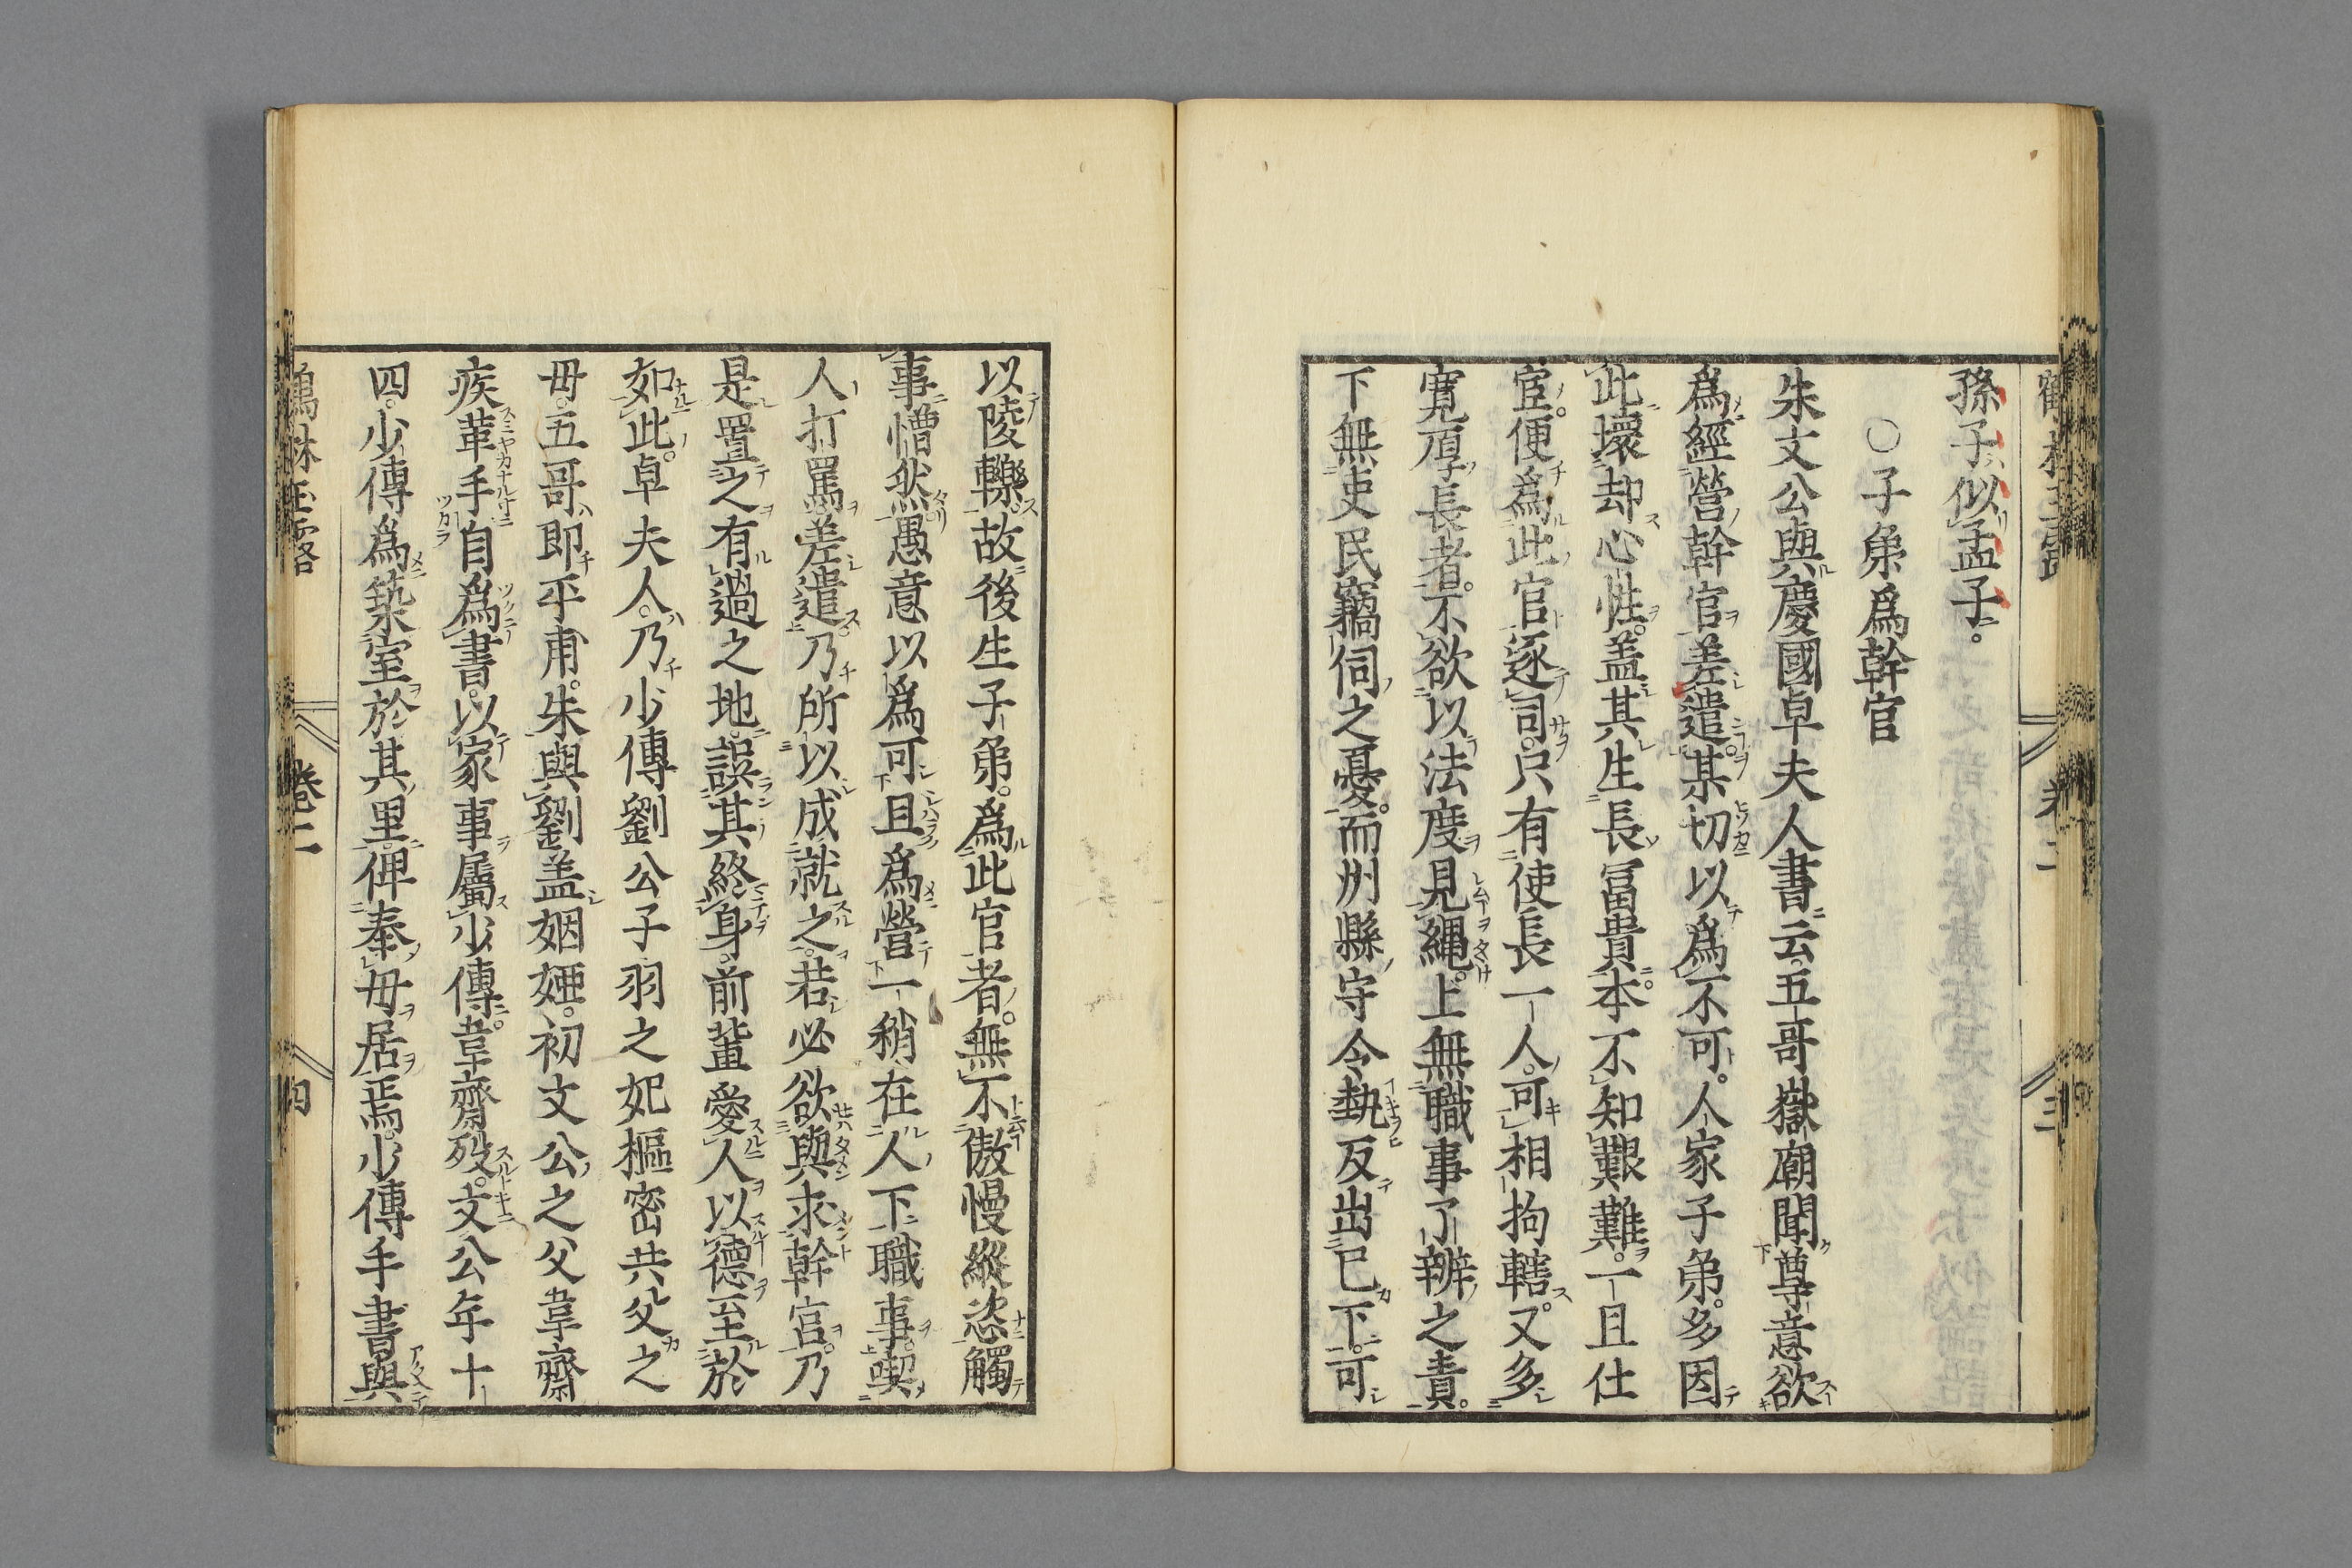 孫子似孟子。
○子弟爲幹官
朱文公與慶國卓夫人書云五哥嶽廟聞尊意欲
爲經營幹官差遣。某切以爲不可。人家子弟。多因
此壞却心性。盖其生長富貴。本不知艱難。一旦仕
宦。便爲此官逐司。只有使長一人。可相拘轄。又多
寬厚長者。不欲以法度見繩。上無職事了辦之責。
下無吏民竊伺之憂。而州縣守令勢反出已下。可
以陵轢。故後生子弟。爲此官者。無不傲慢縱恣觸
事懵然。愚意以爲可且爲營一稍在人下職事。喫
人打罵差遣。乃所以成就之。若必欲與求幹官。乃
是置之有過之地。誤其終身。前輩愛人以德至於
如此。卓夫人。乃少傅劉公子羽之妃樞密共父之
毋。五哥。即平甫。朱與劉盖姻婭。初文公之父韋齋
疾革手自爲書。以家事屬少傅。韋齋殁。文公年十
四。少傅爲築室於其里。俾奉毋居焉。少傅手書與
卷二
四